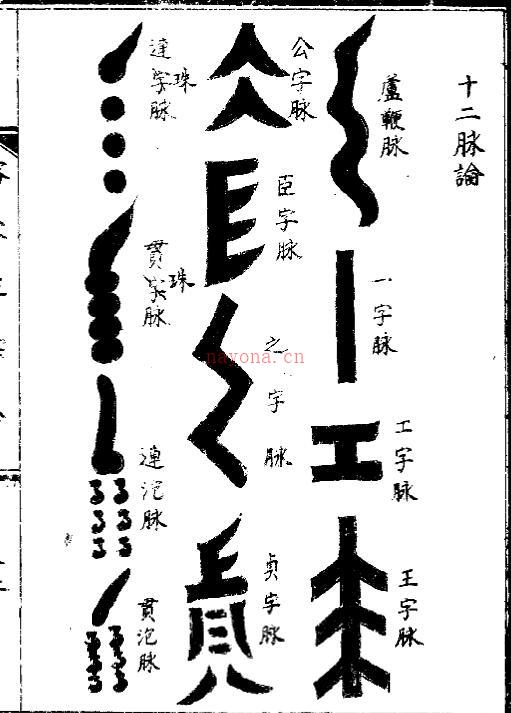 十二脉論
蘆鞭脉
一字脉
工字脉
王字脉
公字脉
臣字脉
之字脉
貞字脉
連珠脉
貫珠脉
連泡脉
貫泡脉
nayona.cn